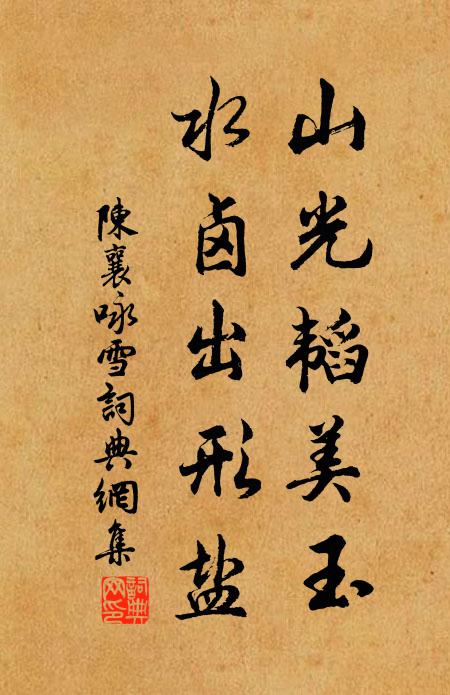 山光韬美玉
水卤出形盐
陳襄咏雪詞典網集
詞典网印